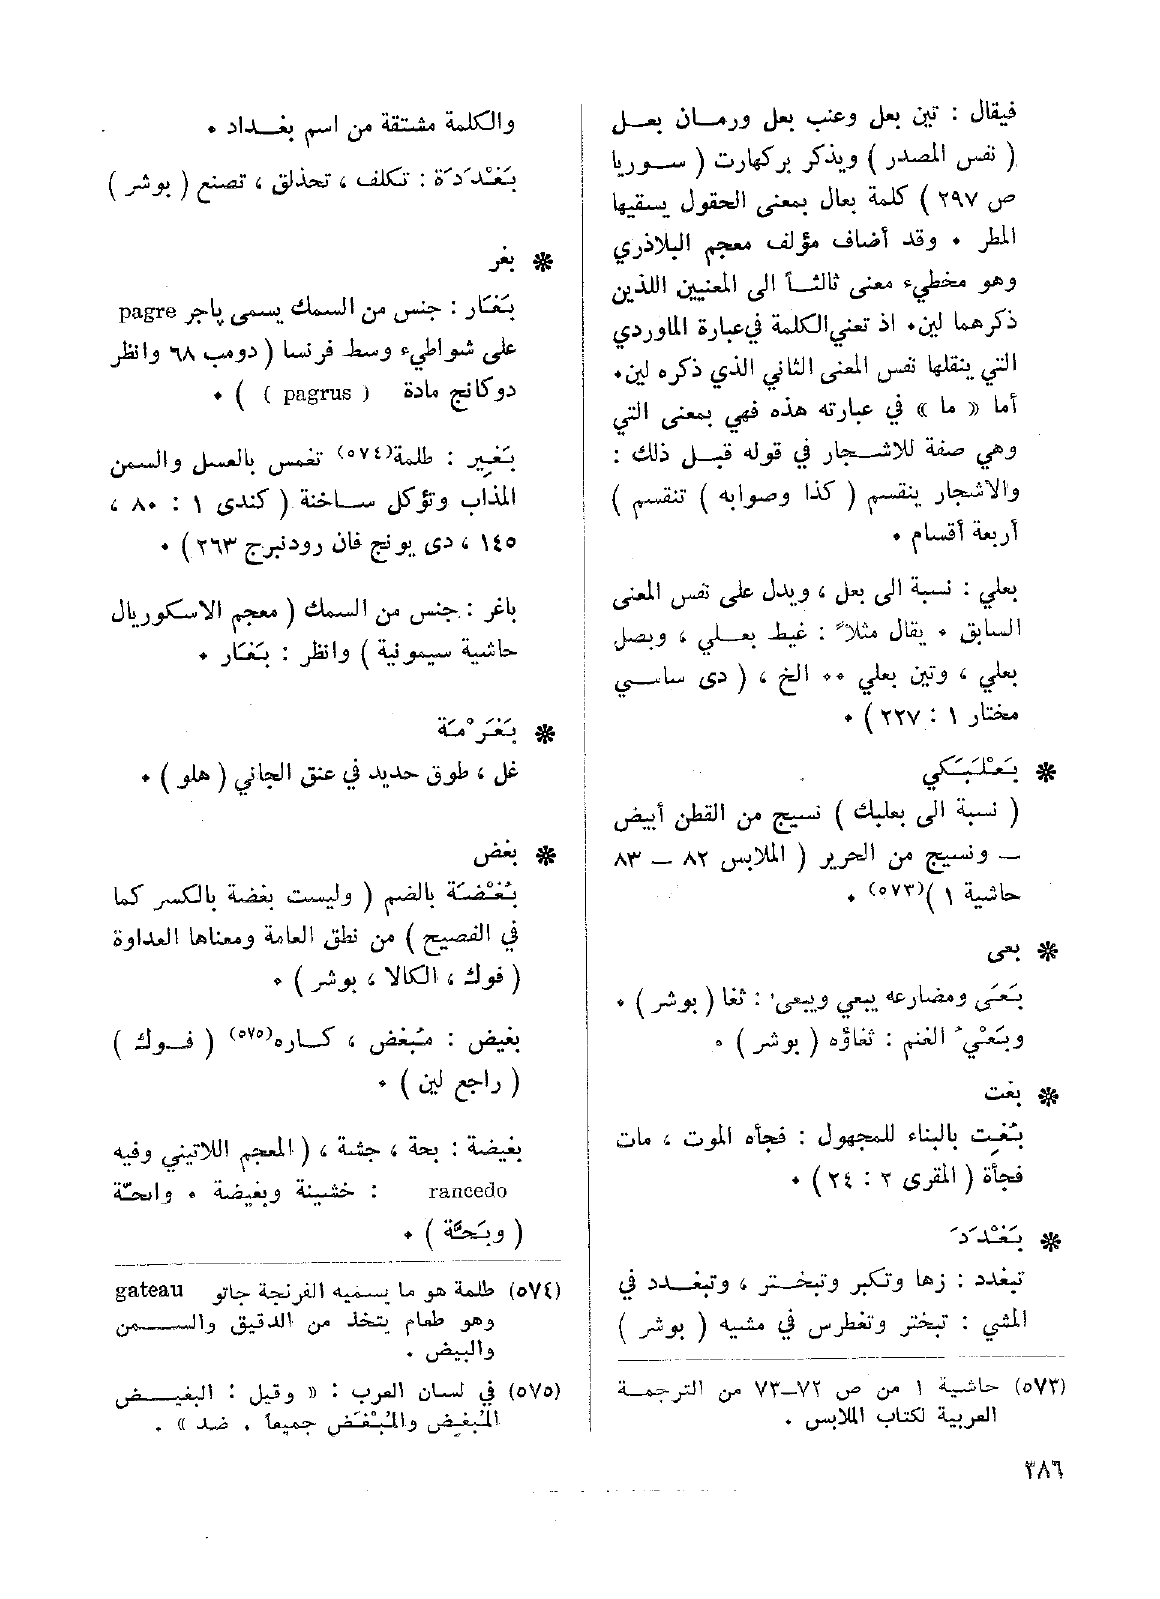 فيقال : تين بعل وعنب بعل ورمـان بعـل
( نفس المصدر ) ويذكر بركهارت ( سـوريا
ص ٢٩٧ ) كلمة بعال بمعنى الحقول يسقيها
المطر . وقد أضاف مؤلف معجم البلاذري
وهو مخطيء معنى ثالثـاً الى المعنيين اللذين
ذكرهما لين. اذ تعني الكلمة في عبارة الماوردي
التي ينقلها نفس المعنى الثاني الذي ذكره لين.
أما « ما » في عبارته هذه فهي بمعنى التي
وهي صفة للاشـجار في قوله قبـل ذلك :
والاشجار ينقسم ( كذا وصوابه ) تنقسم )
أربعة أقسام .
بعلي : نسبة الى بعل ، ويدل على نفس المعنى
السابق . يقال مثلاً : غيط بعـلي ، وبصل
بعلي ، وتين بعلي .. الخ ، ( دى ساسـي
مختار ١ : ٢٢٧ ) .
❋ بَعْلَبَكي
( نسبة الى بعلبك ) نسيج من القطن أبيض
– ونسيج من الحرير ( الملابس ٨٢ – ٨٣
حاشية ١ )(٥٧٣) .
❋ بعى
بَعَى ومضارعه يبعي ويبعى : ثغا ( بوشر ) .
وبَعْيُ الغنم : ثغاؤه ( بوشر ) .
❋ بغت
بُغِت بالبناء للمجهول : فجأه الموت ، مات
فجأة ( المقرى ٢ : ٢٤ ) .
❋ بَغْدَدَ
تبغدد : زها وتكبر وتبخـتر ، وتبغـدد في
المشي : تبختر وتغطرس في مشيه ( بوشر )
(٥٧٣) حاشية ١ من ص ٧٢–٧٣ من الترجمـة
العربية لكتاب الملابس .
والكلمة مشتقة من اسم بغـداد .
بَغْدَدَة : تكلف ، تحذلق ، تصنع ( بوشر )
❋ بغر
بَغَار : جنس من السمك يسمى پاجر pagre
على شواطيء وسط فرنسا ( دومب ٦٨ وانظر
دوكانج مادة ( pagrus ) ) .
بَغِير : طلمة(٥٧٤) تغمس بالعسل والسمن
المذاب وتؤكل سـاخنة ( كندى ١ : ٨٠ ،
١٤٥ ، دى يونج فان رودنبرج ٢٦٣ ) .
باغر : جنس من السمك ( معجم الاسكوريال
حاشية سيمونية ) وانظر : بَغَار .
❋ بَغَرْمَة
غل ، طوق حديد في عنق الجاني ( هلو ) .
❋ بغض
بُغْضَة بالضم ( وليست بغضة بالكسر كما
في الفصيح ) من نطق العامة ومعناها العداوة
( فوك ، الكالا ، بوشر ) .
بغيض : مُبغض ، كـاره(٥٧٥) ( فـوك )
( راجع لين ) .
بغيضة : بحة ، جشة ، ( المعجم اللاتيني وفيه
rancedo : خشينة وبغيضة . وابحّة
( وبَحَّة ) .
(٥٧٤) طلمة هو ما يسميه الفرنجة جاتو gateau
وهو طعام يتخذ من الدقيق والسـمن
والبيض .
(٥٧٥) في لسان العرب : « وقيل : البغيـض
المُبغِض والمُبْغَض جميعاً . ضد » .
٣٨٦